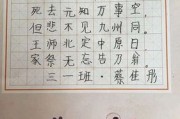 死去元知万事空，
但悲不见九州同。
王师北定中原日，
家祭无忘告乃翁。
三一班·蔡佳彤